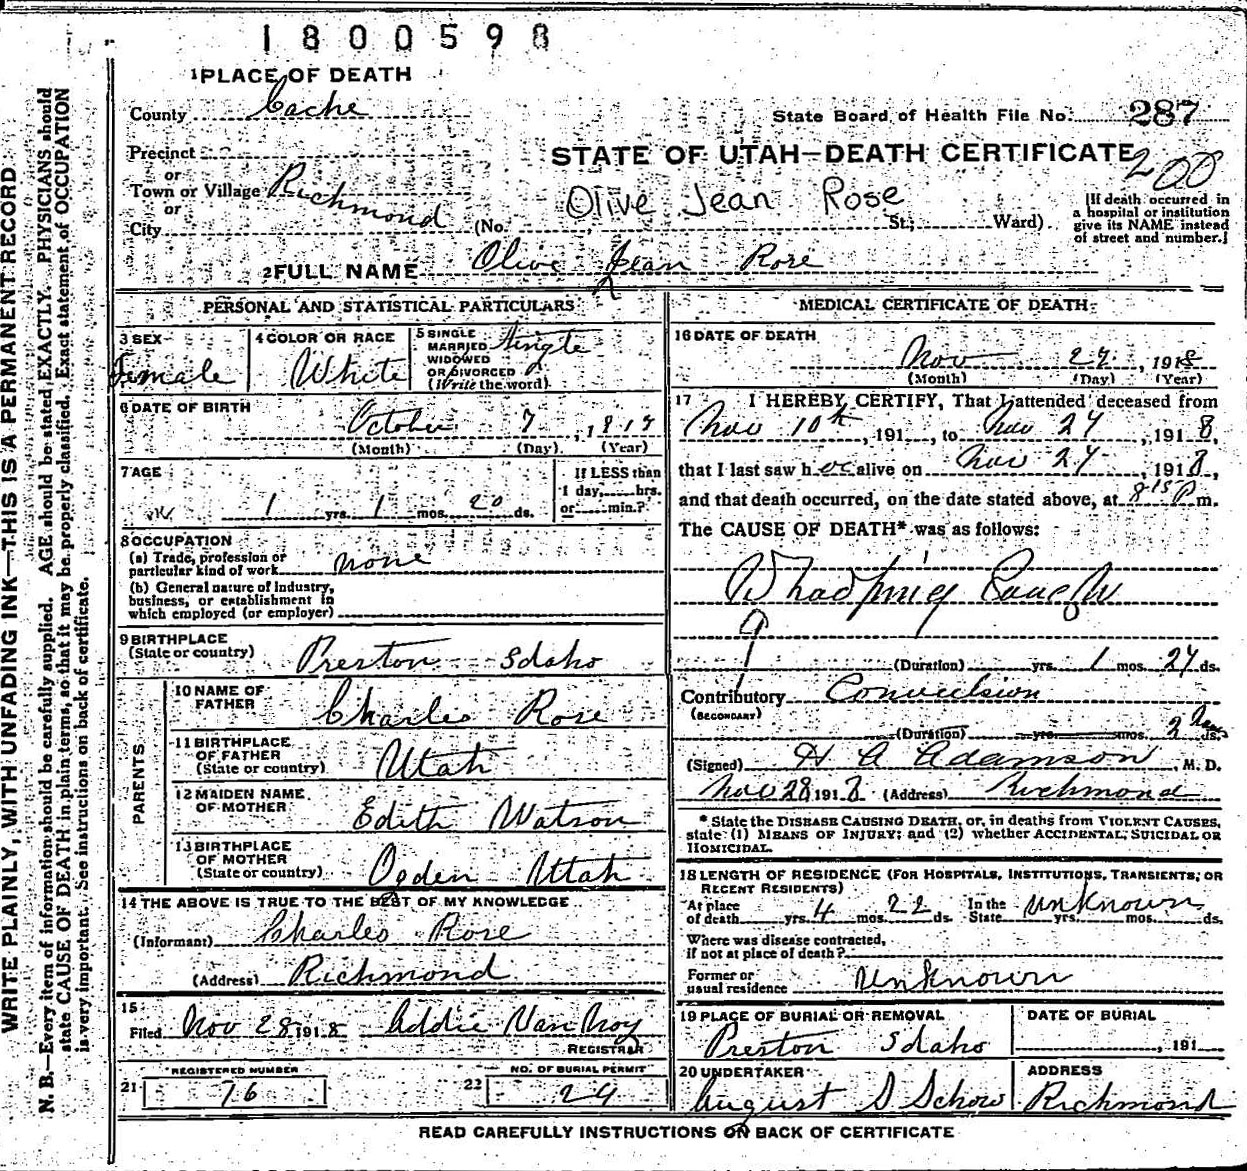 1800598
1 PLACE OF DEATH
County Cache
State Board of Health File No. 287
Precinct
or
STATE OF UTAH—DEATH CERTIFICATE 200
Town or Village Richmond
or
Olive Jean Rose
City (No. St.; Ward)
[If death occurred in
a hospital or institution
give its NAME instead
of street and number.]
2 FULL NAME Olive Jean Rose
PERSONAL AND STATISTICAL PARTICULARS
3 SEX
Female
4 COLOR OR RACE
White
5 SINGLE
MARRIED
WIDOWED
OR DIVORCED
(Write the word)
Single
6 DATE OF BIRTH
October 7, 191
(Month) (Day) (Year)
7 AGE
1 yrs. 1 mos. 20 ds.
If LESS than
1 day, hrs.
or min.?
8 OCCUPATION
(a) Trade, profession or
particular kind of work none
(b) General nature of industry,
business, or establishment in
which employed (or employer)
9 BIRTHPLACE
(State or country) Preston Idaho
PARENTS
10 NAME OF
FATHER Charles Rose
11 BIRTHPLACE
OF FATHER
(State or country) Utah
12 MAIDEN NAME
OF MOTHER Edith Watson
13 BIRTHPLACE
OF MOTHER
(State or country) Ogden Utah
14 THE ABOVE IS TRUE TO THE BEST OF MY KNOWLEDGE
(Informant) Charles Rose
(Address) Richmond
15
Filed Nov 28 1918 Addie Van Noy
REGISTRAR
REGISTERED NUMBER
21 76
NO. OF BURIAL PERMIT
22 29
MEDICAL CERTIFICATE OF DEATH
16 DATE OF DEATH
Nov 27, 1918
(Month) (Day) (Year)
17 I HEREBY CERTIFY, That I attended deceased from
Nov 10th, 191, to Nov 27, 1918,
that I last saw her alive on Nov 27, 1918,
and that death occurred, on the date stated above, at 8 15 P m.
The CAUSE OF DEATH* was as follows:
Whooping Cough
(Duration) yrs. 1 mos. 27 ds.
Contributory Convulsion
(SECONDARY)
(Duration) yrs. mos. 2 Days ds.
(Signed) H A Adamson, M. D.
Nov 28 1918 (Address) Richmond
* State the DISEASE CAUSING DEATH, or, in deaths from VIOLENT CAUSES,
state (1) MEANS OF INJURY; and (2) whether ACCIDENTAL, SUICIDAL OR
HOMICIDAL.
18 LENGTH OF RESIDENCE (FOR HOSPITALS, INSTITUTIONS, TRANSIENTS, OR
RECENT RESIDENTS)
At place
of death yrs. 4 mos. 22 ds.
In the
State unknown yrs. mos. ds.
Where was disease contracted,
if not at place of death?
Former or
usual residence Unknown
19 PLACE OF BURIAL OR REMOVAL
Preston Idaho
DATE OF BURIAL
, 191
20 UNDERTAKER
August S Schow
ADDRESS
Richmond
READ CAREFULLY INSTRUCTIONS ON BACK OF CERTIFICATE
WRITE PLAINLY, WITH UNFADING INK—THIS IS A PERMANENT RECORD
N. B.—Every item of information should be carefully supplied. AGE should be stated EXACTLY. PHYSICIANS should
state CAUSE OF DEATH in plain terms, so that it may be properly classified. Exact statement of OCCUPATION
is very important. See instructions on back of certificate.